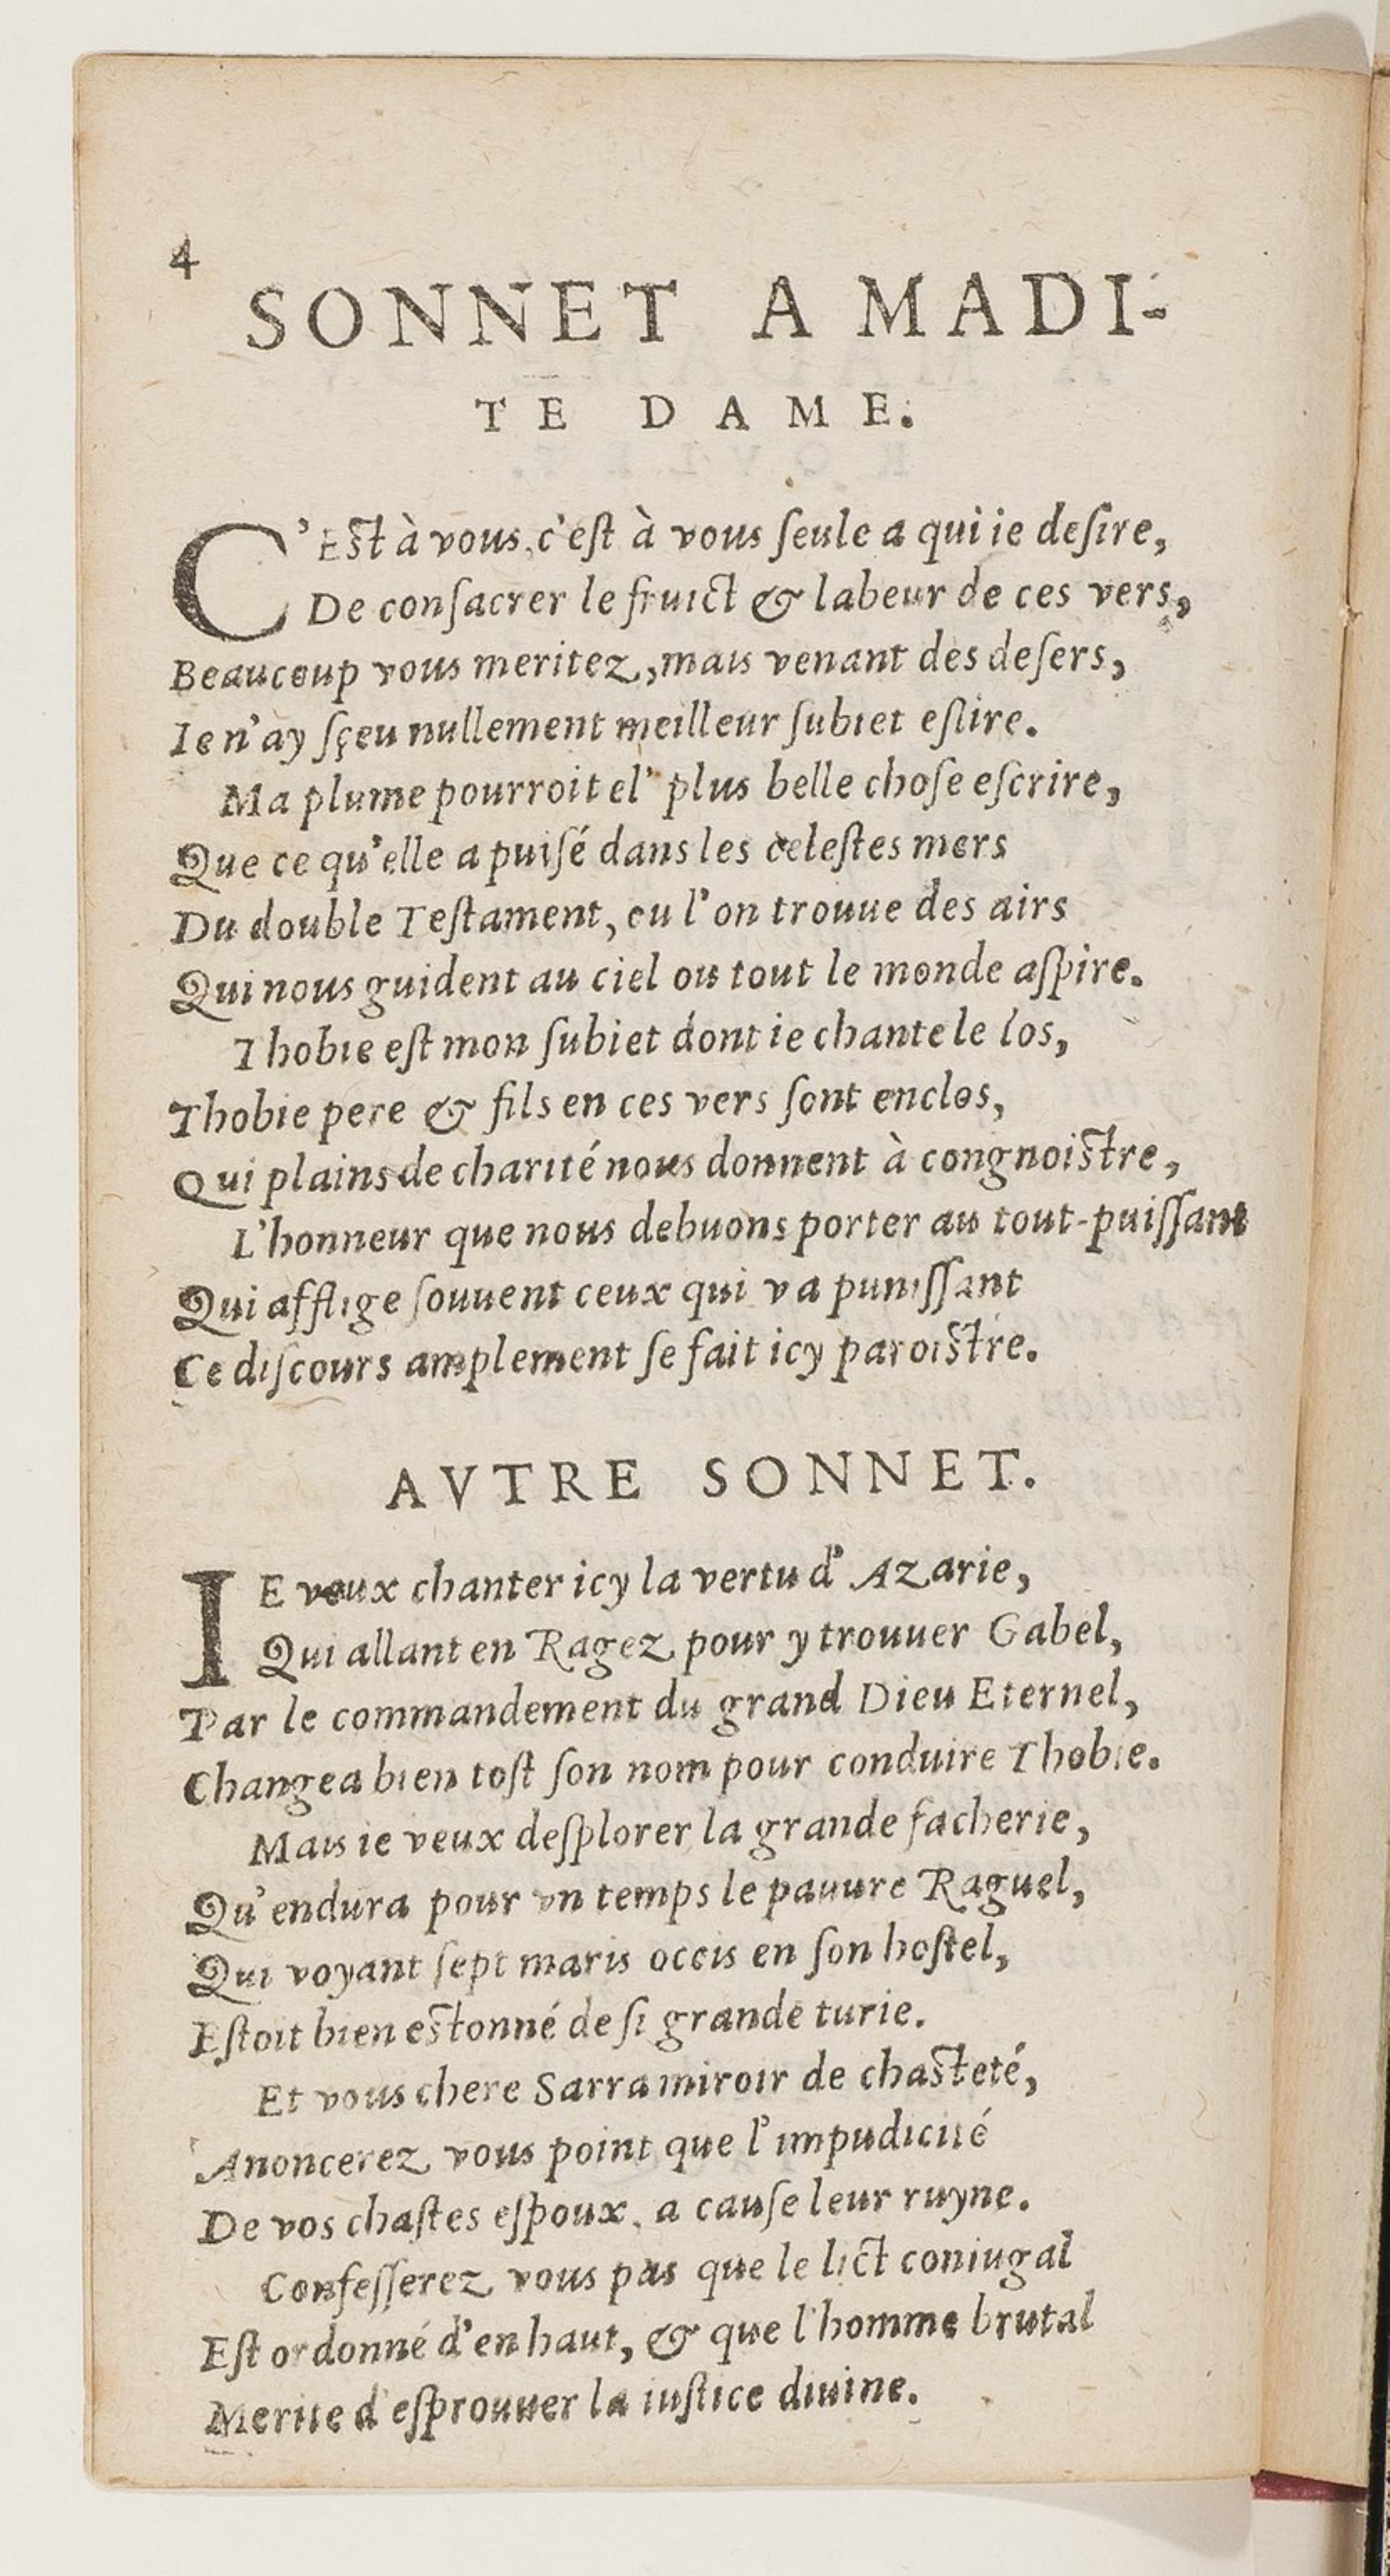 4
SONNET A MADI-
TE DAME.
C'Est à vous, c'eſt à vous ſeule a qui ie deſire,
De conſacrer le fruict & labeur de ces vers,
Beaucoup vous meritez, mais venant des deſers,
Ie n'ay ſçeu nullement meilleur ſubiet eſlire.
Ma plume pourroit el' plus belle choſe eſcrire,
Que ce qu'elle a puiſé dans les celeſtes mers
Du double Teſtament, ou l'on trouue des airs
Qui nous guident au ciel ou tout le monde aſpire.
Thobie eſt mon ſubiet dont ie chante le los,
Thobie pere & fils en ces vers ſont enclos,
Qui plains de charité nous donnent à congnoiſtre,
L'honneur que nous debuons porter au tout-puiſſant
Qui afflige ſouuent ceux qui va puniſſant
Ce diſcours amplement ſe fait icy paroiſtre.
AVTRE SONNET.
IE veux chanter icy la vertu d'Azarie,
Qui allant en Ragez pour y trouuer Gabel,
Par le commandement du grand Dieu Eternel,
Changea bien toſt ſon nom pour conduire Thobie.
Mais ie veux deſplorer la grande facherie,
Qu'endura pour vn temps le pauure Raguel,
Qui voyant ſept maris occis en ſon hoſtel,
Eſtoit bien eſtonné de ſi grande turie.
Et vous chere Sarra miroir de chaſteté,
Anoncerez vous point que l'impudicité
De vos chaſtes eſpoux, a cauſe leur ruyne.
Confeſſerez vous pas que le lict coniugal
Eſt ordonné d'en haut, & que l'homme brutal
Merite d'eſprouuer la iuſtice diuine.